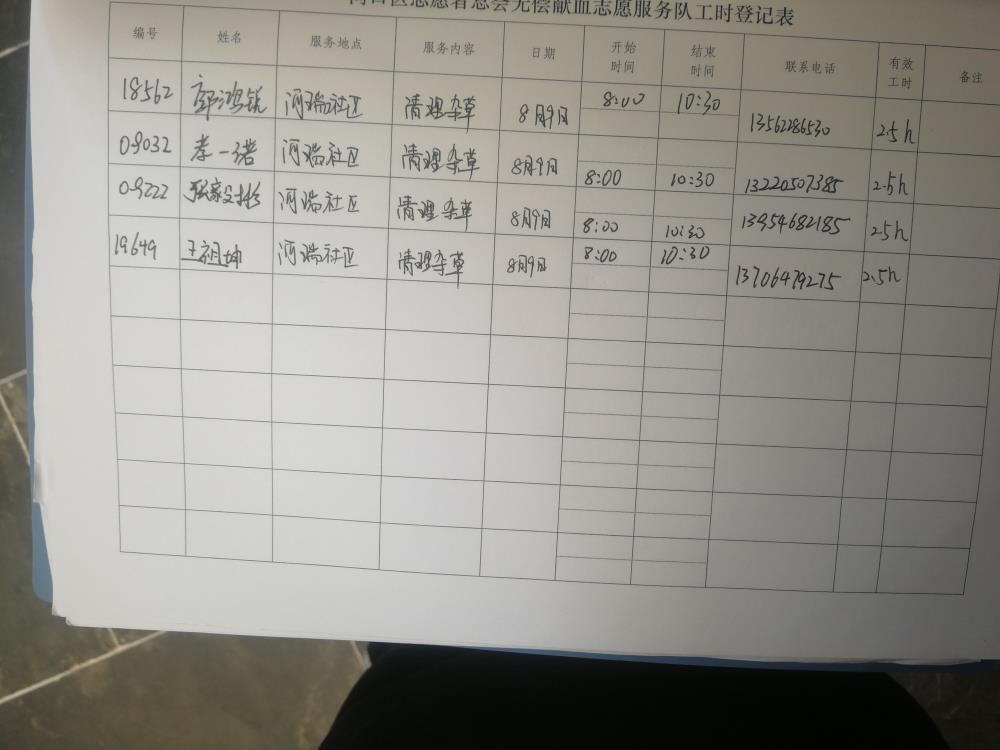 口区志愿者总会无偿献血志愿服务队工时登记表
编号 姓名 服务地点 服务内容 日期 开始时间 结束时间 联系电话 有效工时 备注
18562 郭鸿锐 河瑞社区 清理杂草 8月9日 8:00 10:30 13562286530 2.5h
09032 李一诺 河瑞社区 清理杂草 8月9日 8:00 10:30 13220507385 2.5h
09222 张家 河瑞社区 清理杂草 8月9日 8:00 10:30 13954682185 2.5h
19649 王祖坤 河瑞社区 清理杂草 8月9日 8:00 10:30 13706479275 2.5h